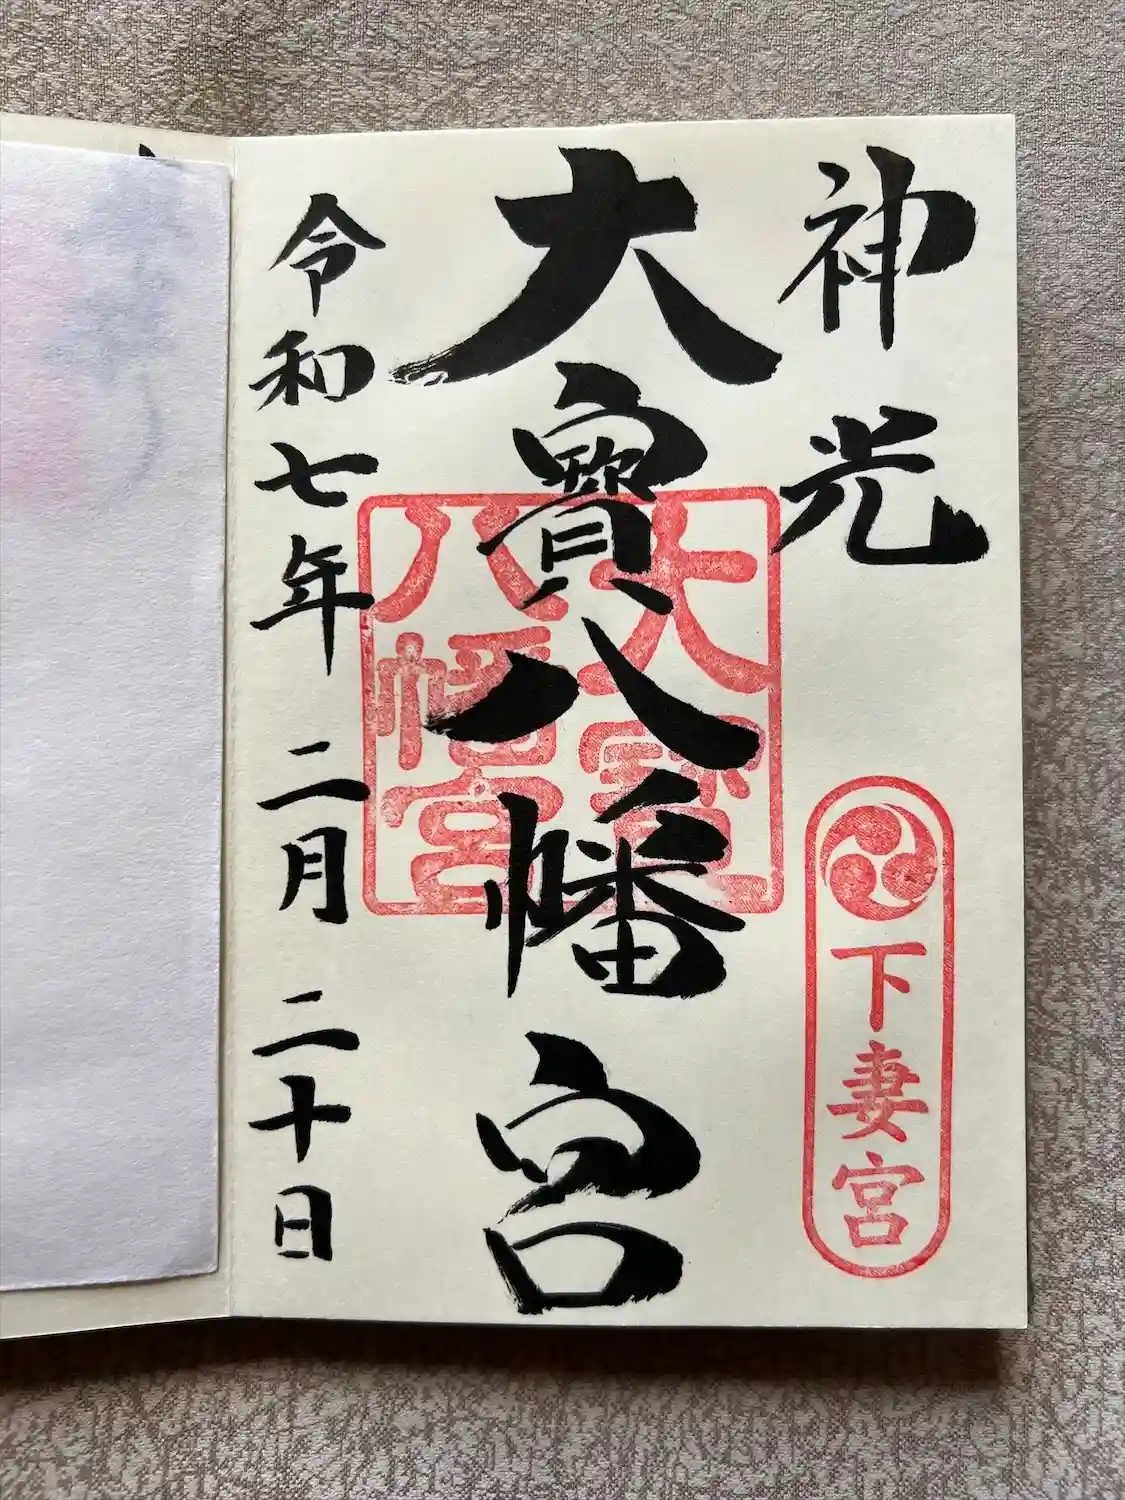 神光
下妻宮
大寳八幡宮
大寳
八幡宮
令和七年二月二十日